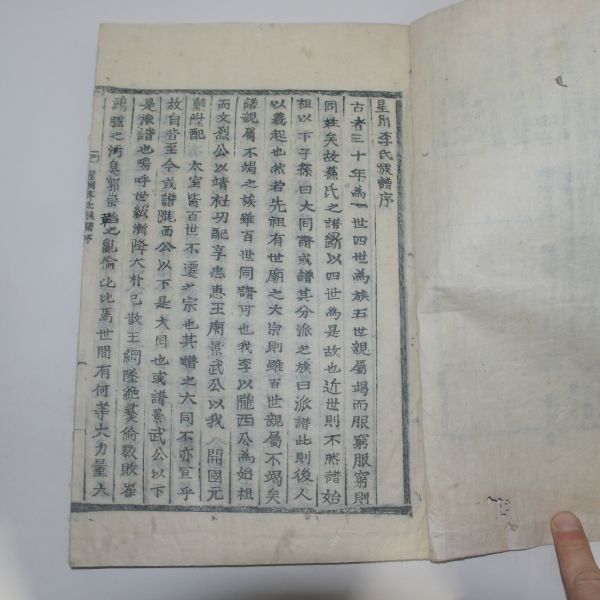 星州李氏族譜序
古者三十年為一世四世為族五世親屬竭而服窮服窮則
同姓矣故蘇氏之譜斷以四世為是故也近世則不然譜始
祖以下子孫曰大同譜或譜其分派之族曰派譜此則後人
以義起也然若先祖有世廟之大宗則雖百世親屬不竭矣
譜親屬不竭之族雖百世同譜可也我李以隴西公為始祖
而文烈公以靖社功配享忠惠王廟景武公以我 開國元
勳陞配 太室皆百世不遷之宗也其譜之大同不亦宜乎
故自昔至今或譜隴西公以下是大同也或譜景武公以下
是派譜也嗚呼世級漸降大朴已散王綱墜絶彛倫斁敗崔
鴻驢之 臭郭崇韜之亂倫比比焉世間有何等大力量大
星州李氏族譜序